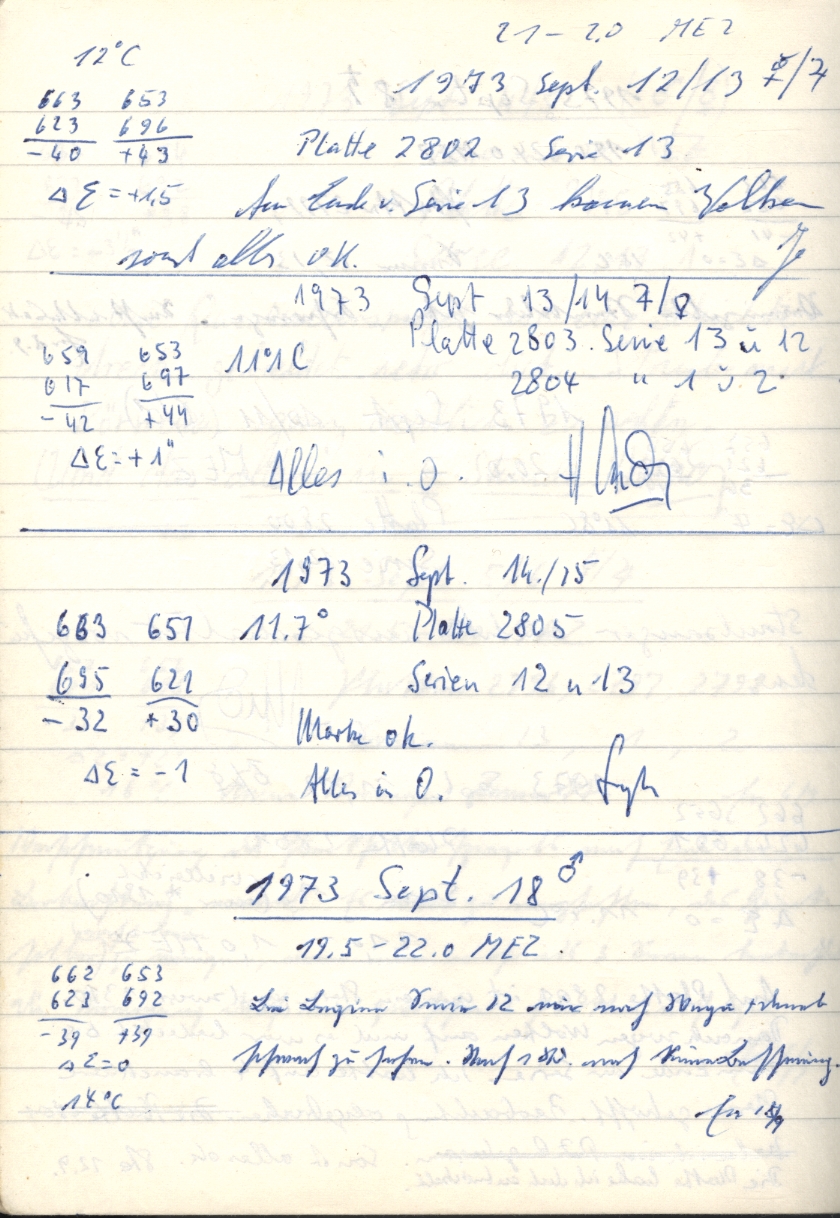 21 – 2.0 MEZ
12°C
1973 Sept. 12/13 /7
663 653
623 696
-40 +43
Platte 2802 Serie 13
Δε = +1,5
Am Ende v. Serie 13 kamen Wolken
sonst alles ok.
1973 Sept 13/14 7/8
Platte 2803. Serie 13 u 12
659 653 11°1C
617 697
2804 " 1 u. 2.
-42 +44
Δε = +1"
Alles i. O.
1973 Sept. 14./15
663 651 11.7° Platte 2805
695 621 Serien 12 u 13
-32 +30
Marke ok.
Δε = -1
Alles in O.
1973 Sept. 18 ♂
19.5 – 22.0 MEZ.
662 653
623 692
-39 +39
Bei Beginn Serie 12 nur noch Wega
schwach zu sehen. Nach 1 Std. noch keine Besserung.
Δε = 0
14°C